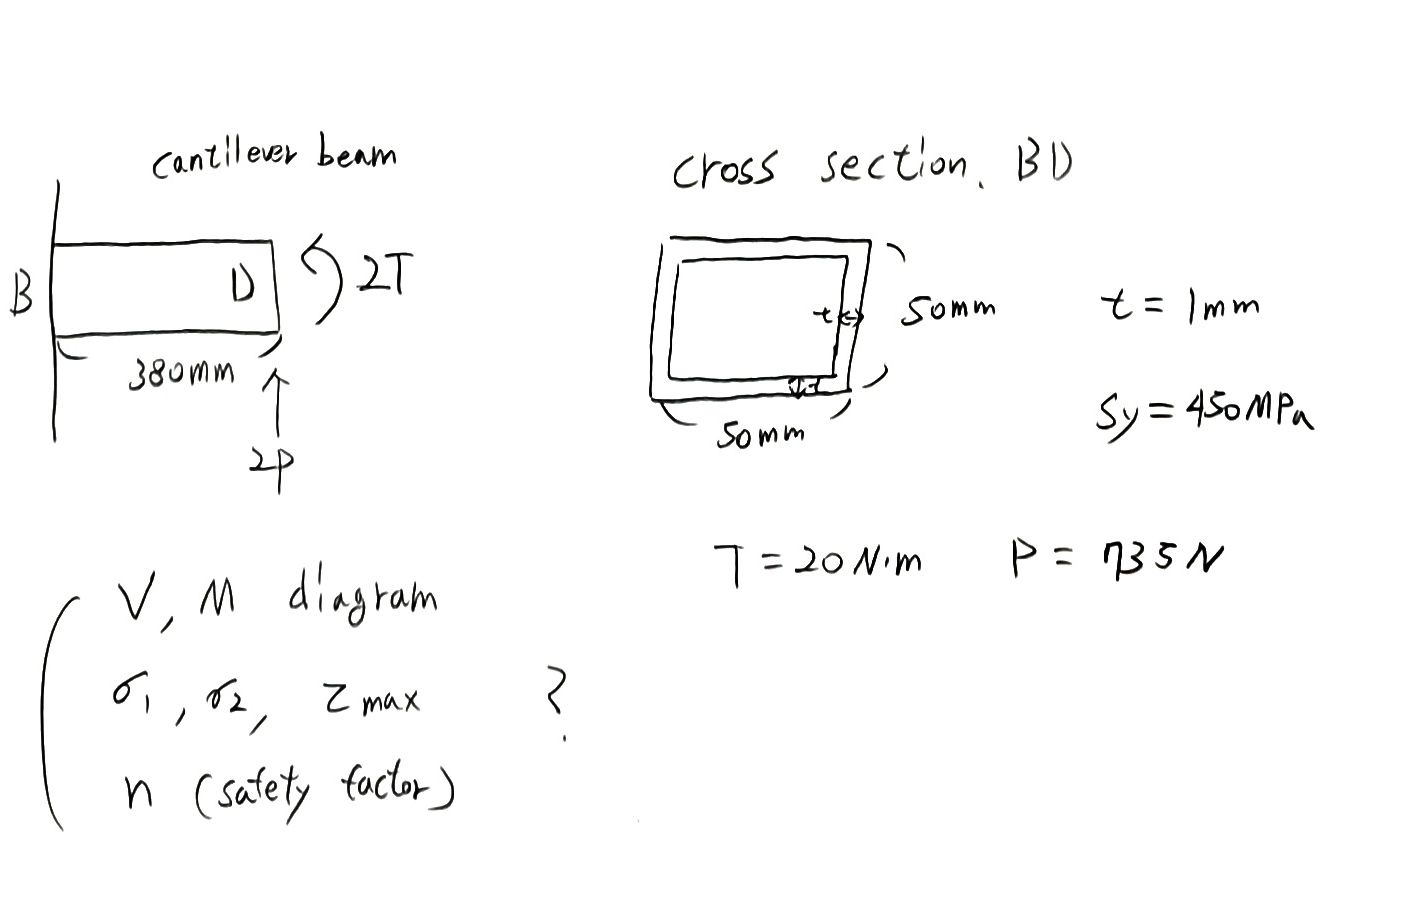 cantilever beam
B
D
2T
380mm
2P
cross section. BD
t
t
50mm
50mm
t = 1mm
Sy = 450MPa
T = 20N·m
P = 735N
V, M diagram
σ1, σ2, τmax
?
n (safety factor)